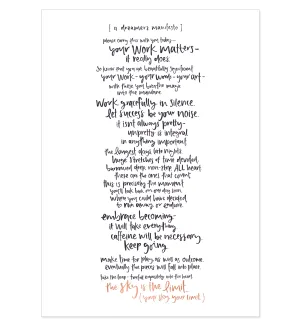 [ a dreamers manifesto ]
please carry this with you today—
your work matters—
it really does.
so know that you are beautifully significant
your work - your words - your art -
with these you breathe magic
into the mundane
work gracefully in silence.
let success be your noise.
it isnt always pretty—
unpretty is integral
in anything important
the longest days late nights
huge stretches of time devoted,
ALL heart
these are the ones that count
this is precisely the moment
you'll look back on one day soon
where you could have decided
to run away or endure.
embrace becoming—
it will take everything
caffeine will be necessary
keep going.
make time for play as well as outcome.
eventually the pieces will fall into place.
take the leap -
the sky is the limit.
(your sky, your limit.)